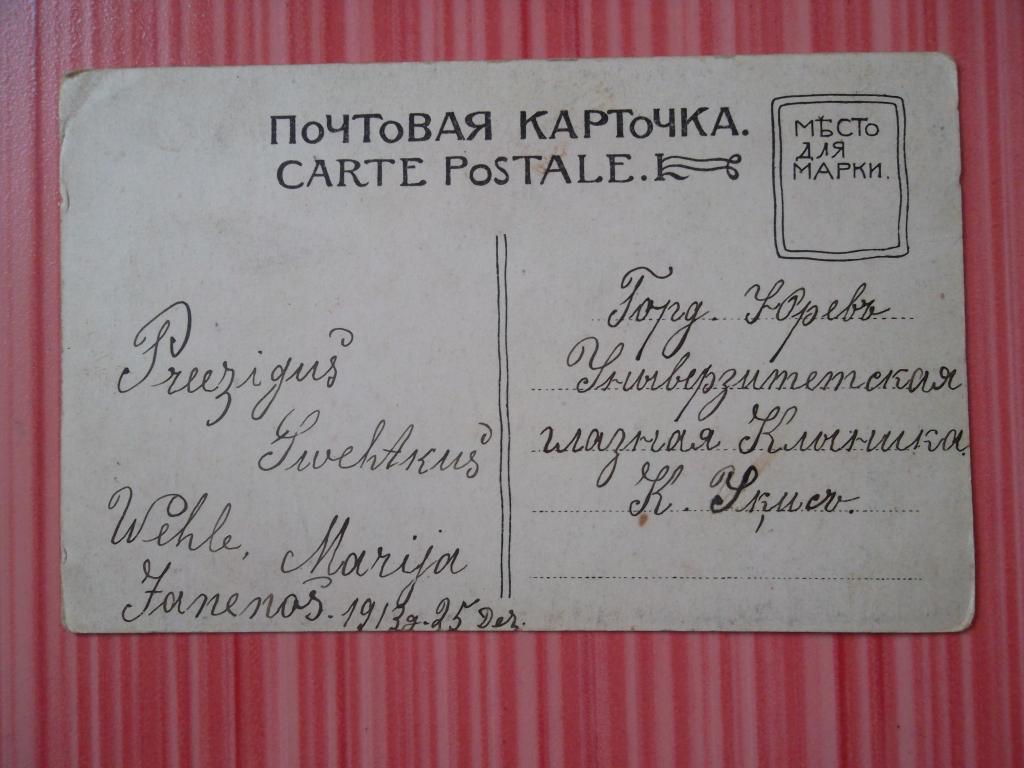 ПОЧТОВАЯ КАРТОЧКА.
CARTE POSTALE.
МѢСТО
ДЛЯ
МАРКИ.
Preezigus
Swehtkus
Wehle, Marija
Janenoš. 1913g. 25 Dez.
Горд. Юревъ
Униыверзитетская
глазная Клыника
К. Укисъ.